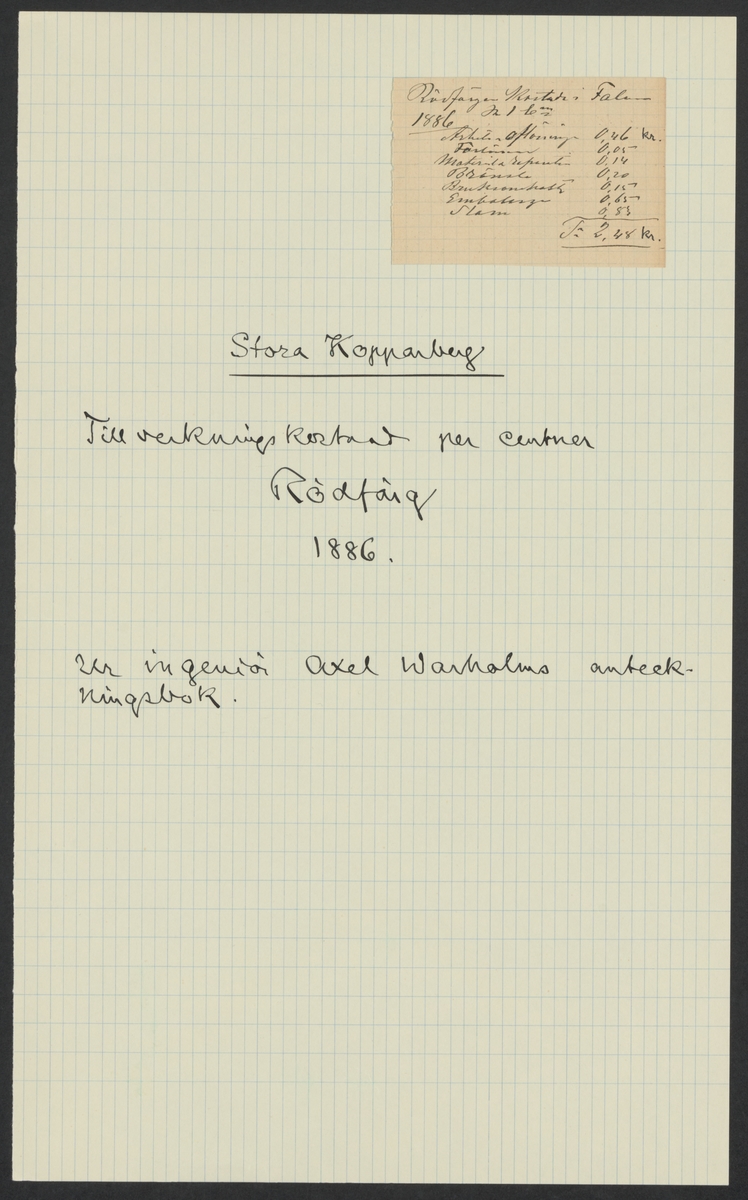 Rödfärgen kostade i Falun
1886 pr 1 ctnr
Arbets aflöning 0,46 kr.
Förlöner 0,05
Material & reparatio 0,14
Bränsle 0,20
Bruksomkostn 0,15
Emballage 0,65
Slam 0,83
Sa 2,48 kr.
Stora Kopparberg
Tillverkningskostnad per centner
Rödfärg
1886.
Ur ingeniör Axel Warholms anteck-
ningsbok.